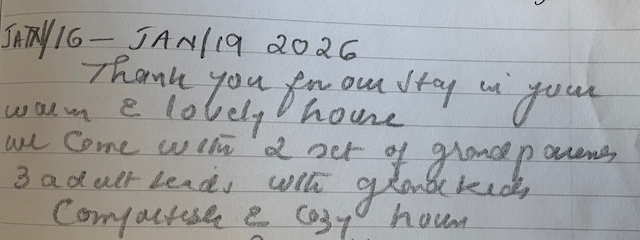 JAN/16 - JAN/19 2026
Thank you for our stay in your
warm & lovely house
we come with 2 set of grandparents
3 adult keads with grandkeads
& cozy